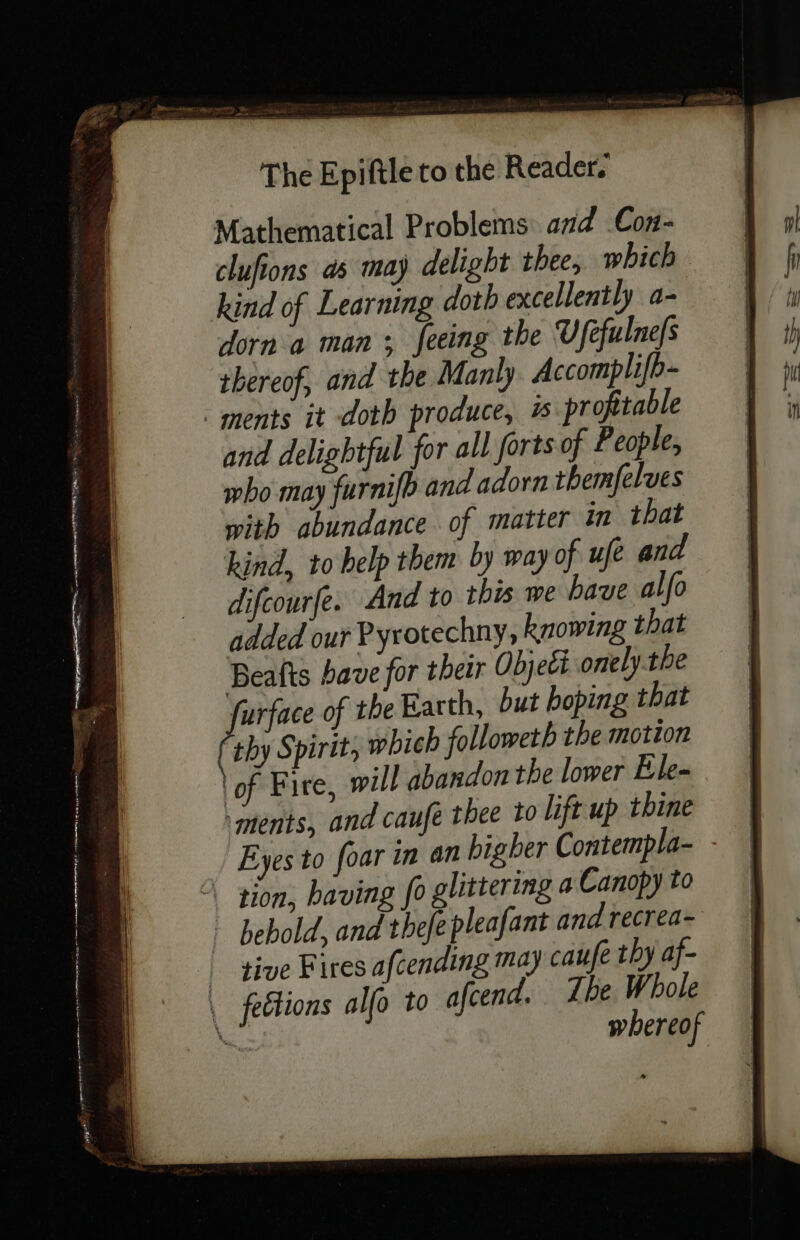 The Epiſtle to the Reader.
Mathematical Problems and Con-
cluſions as may delight thee, which
kind of Learning doth excellently a-
dorn a man ; ſeeing the Uſefulneſs
thereof, and the Manly Accompliſh-
ments it doth produce, is profitable
and delightful for all ſorts of People,
who may furniſh and adorn themſelves
with abundance of matter in that
kind, to help them by way of uſe and
diſcourſe. And to this we have alſo
added our Pyrotechny, knowing that
Beaſts have for their Object onely the
ſurface of the Earth, but hoping that
thy Spirit, which followeth the motion
of Fire, will abandon the lower Ele-
ments, and cauſe thee to lift up thine
Eyes to ſoar in an higher Contempla-
tion, having ſo glittering a Canopy to
behold, and theſe pleaſant and recrea-
tive Fires aſcending may cauſe thy af-
fections alſo to aſcend. The Whole
whereof